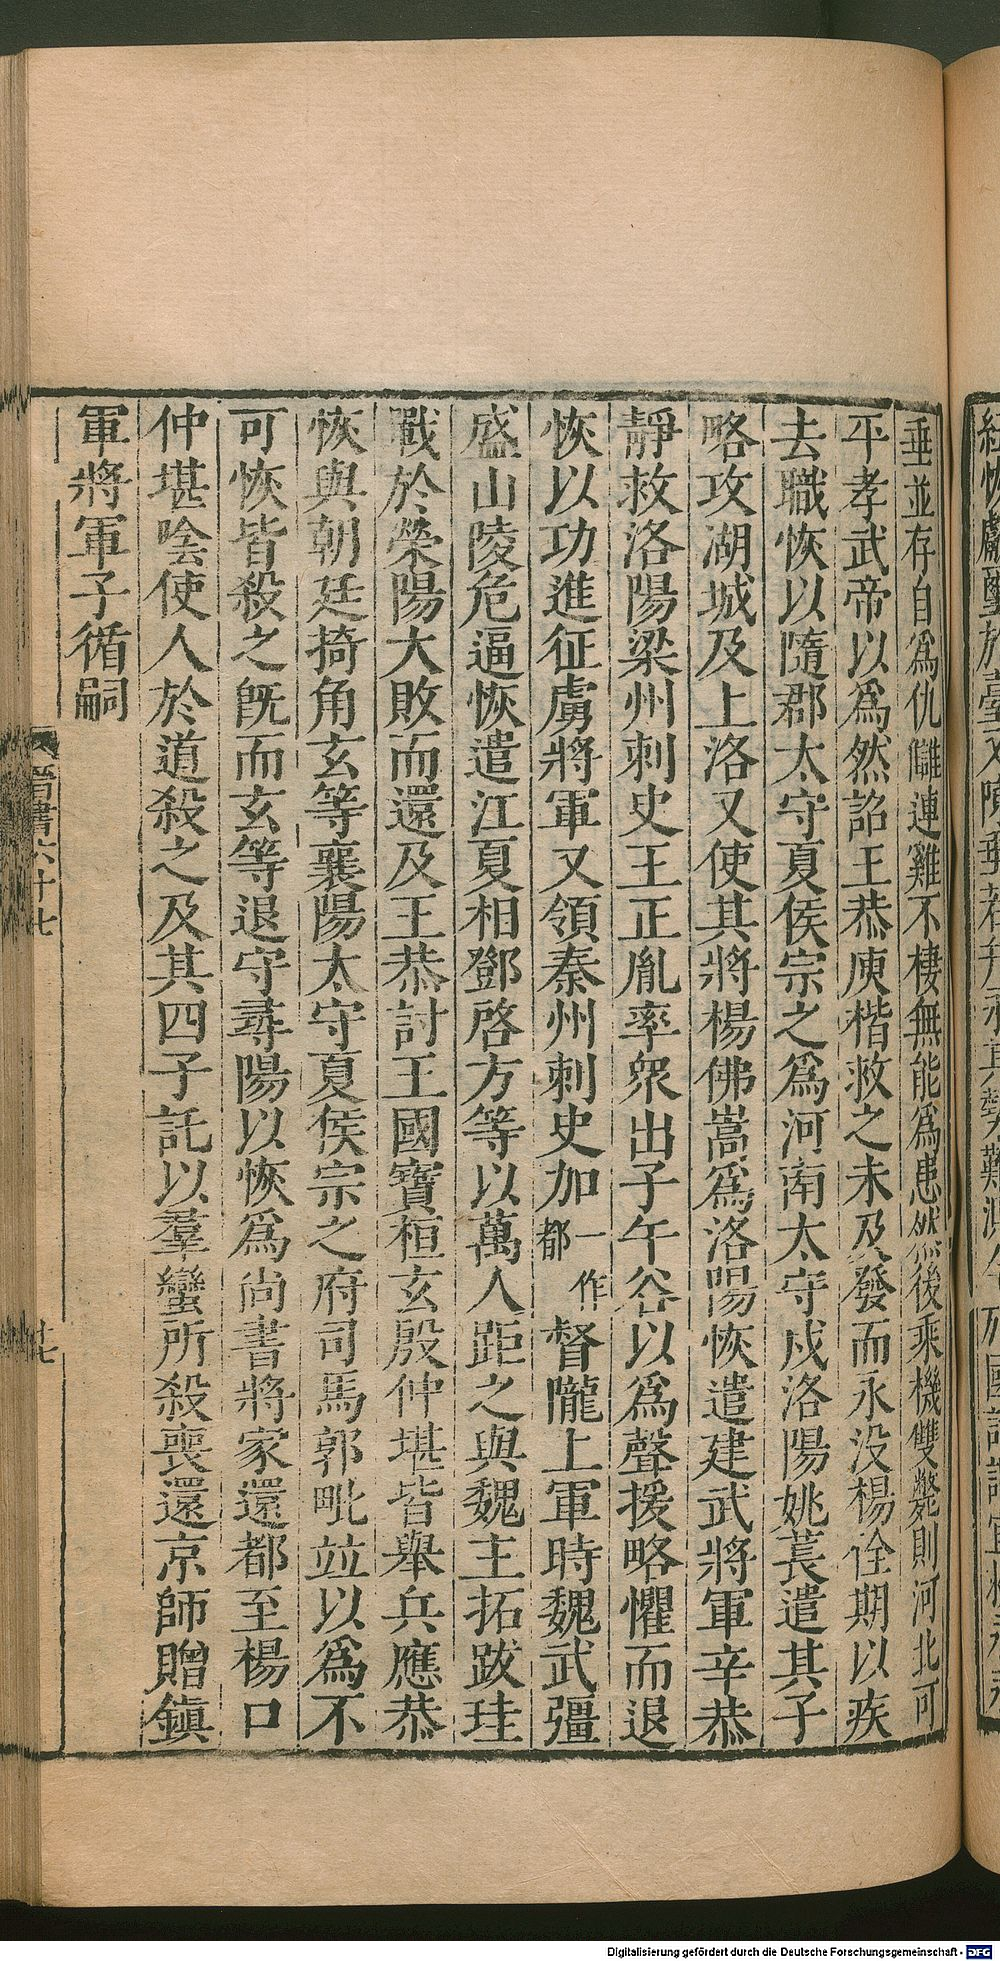 垂並存自爲仇讎連雞不棲無能爲患然後乘機雙斃則河北可
平孝武帝以爲然詔王恭庾楷救之未及發而永没楊佺期以疾
去職恢以隨郡太守夏侯宗之爲河南太守戍洛陽姚萇遣其子
略攻湖城及上洛又使其將楊佛嵩爲洛陽恢遣建武將軍辛恭
靜救洛陽梁州刺史王正胤率衆出子午谷以爲聲援略懼而退
恢以功進征虜將軍又領秦州刺史加一作都督隴上軍時魏武彊
盛山陵危逼恢遣江夏相鄧啓方等以萬人距之與魏主拓跋珪
戰於滎陽大敗而還及王恭討王國寶桓玄殷仲堪皆舉兵應恭
恢與朝廷掎角玄等襄陽太守夏侯宗之府司馬郭毗竝以爲不
可恢皆殺之旣而玄等退守尋陽以恢爲尚書將家還都至楊口
仲堪陰使人於道殺之及其四子託以羣蠻所殺喪還京師贈鎭
軍將軍子循嗣
晉書六十七
十七
Digitalisierung gefördert durch die Deutsche Forschungsgemeinschaft - DFG